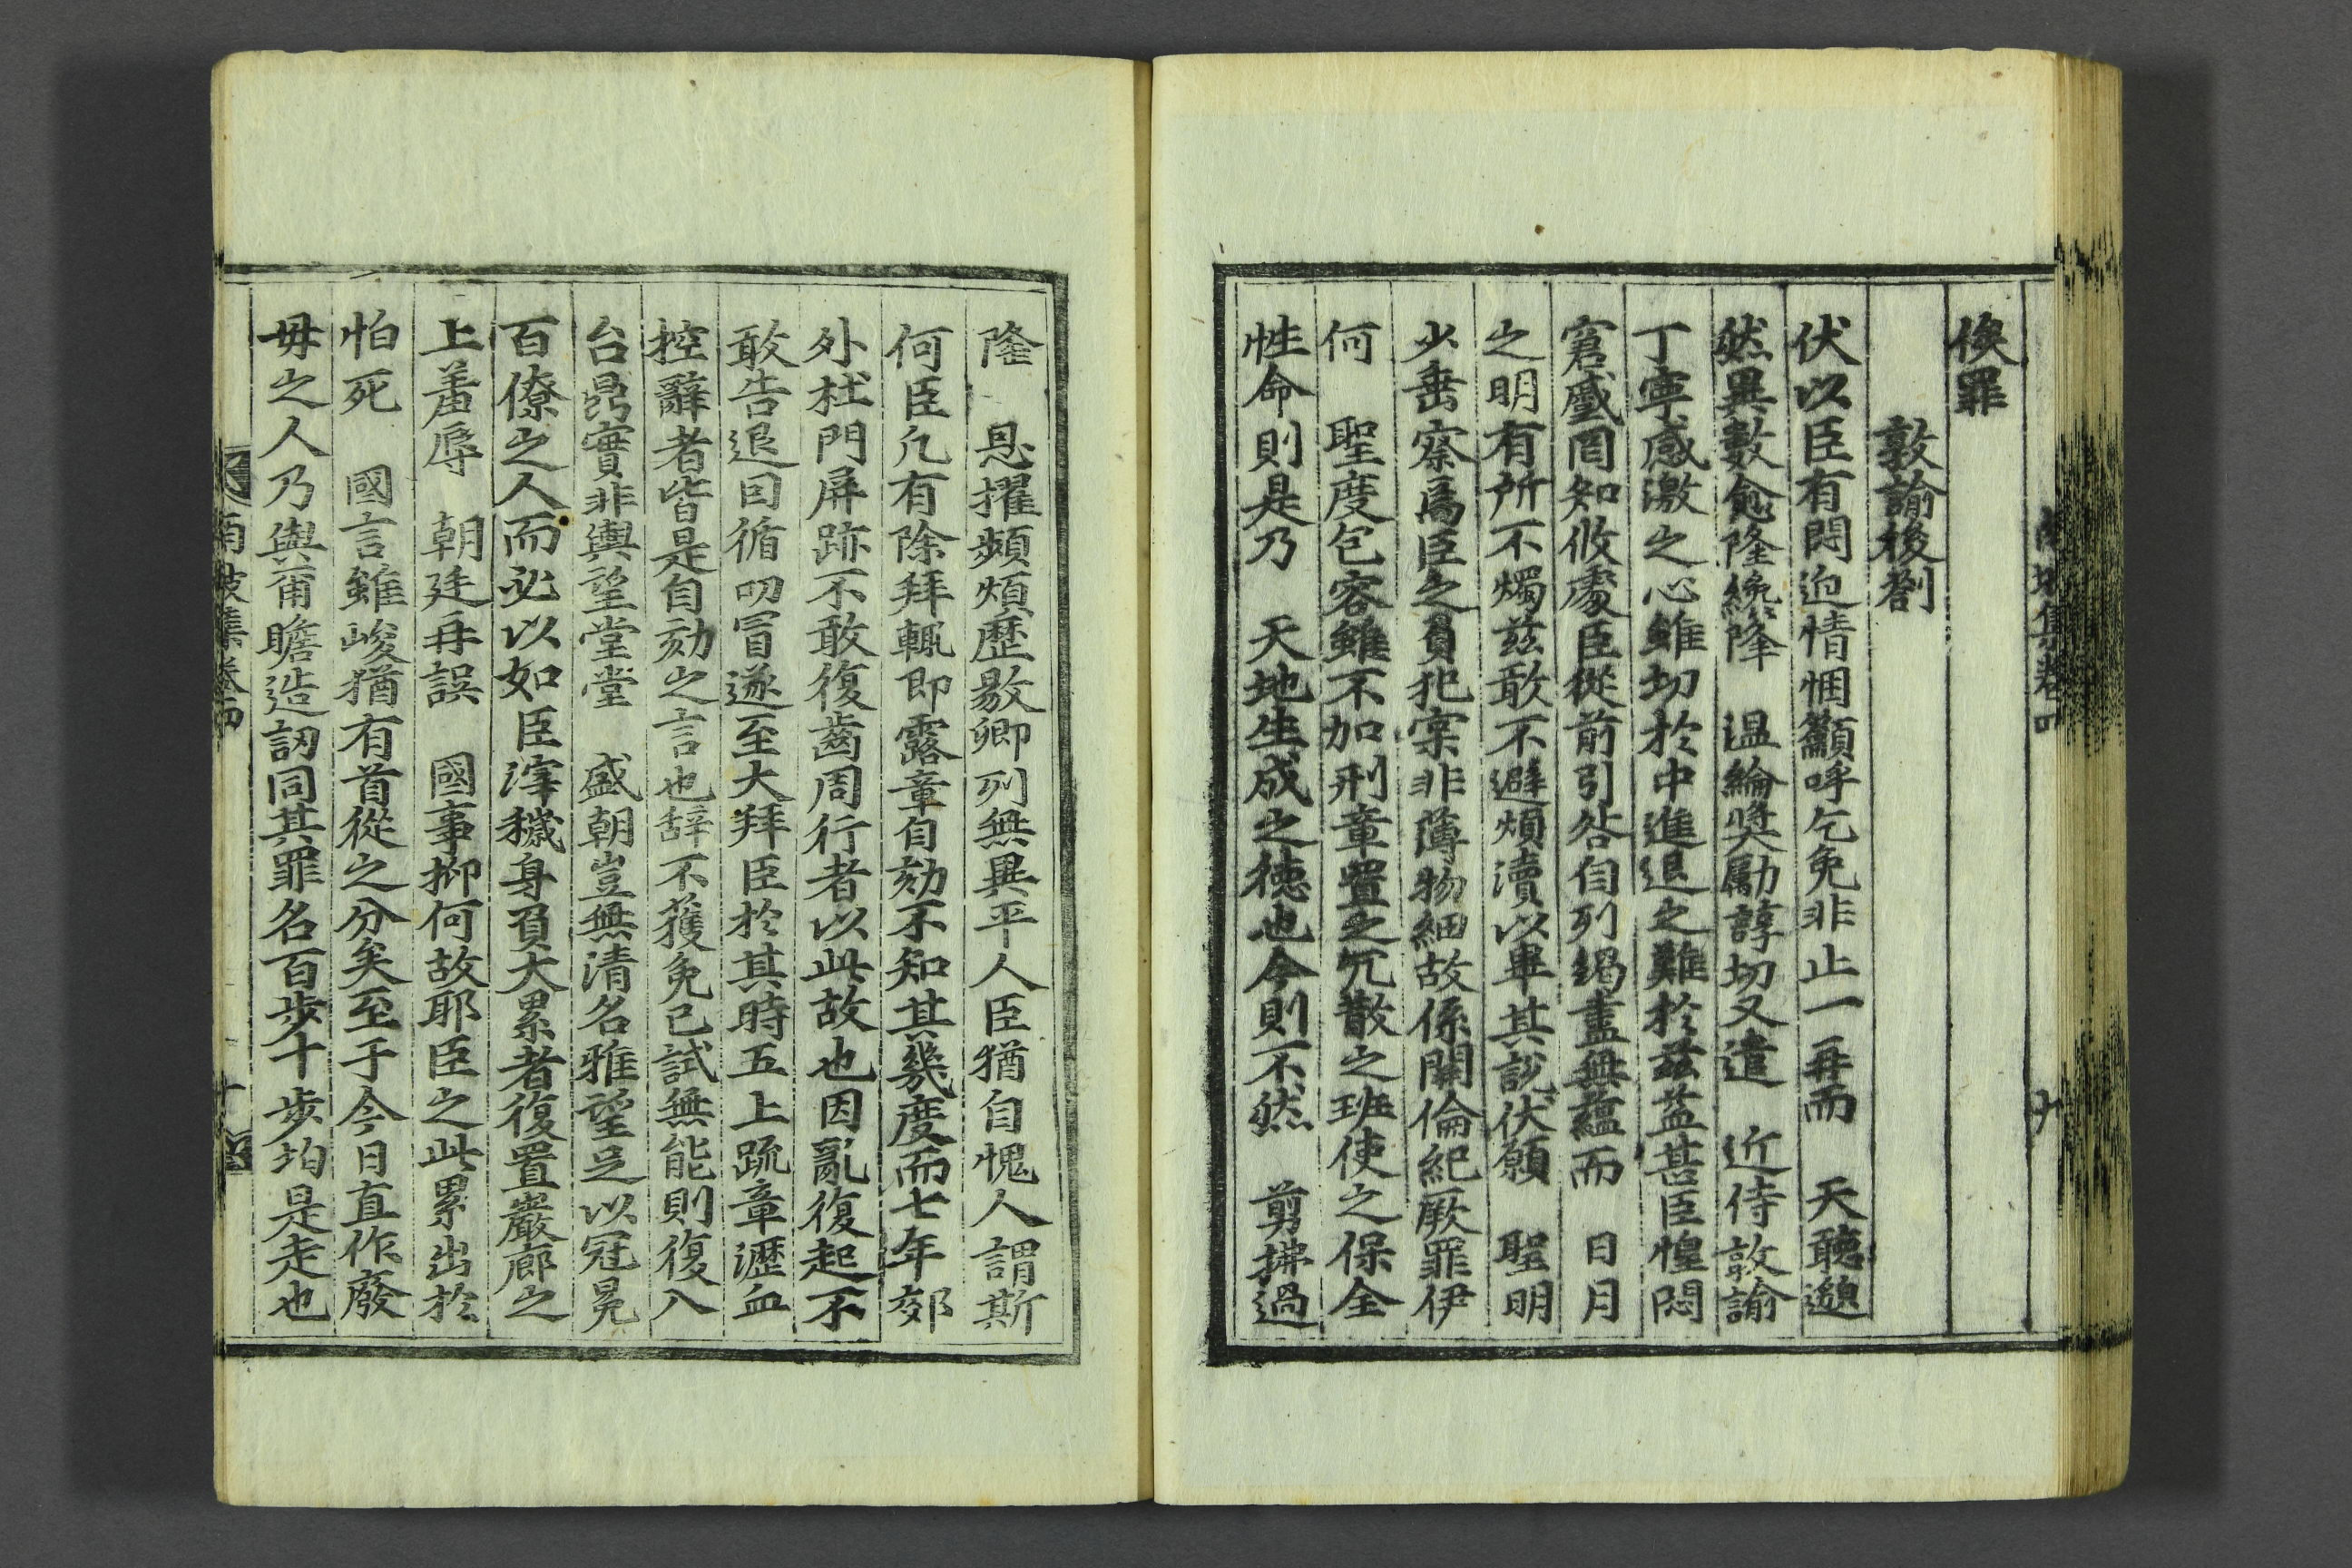 俟罪
敦諭後劄
伏以臣有悶迫情悃籲呼乞免非止一再而　天聽邈
然異數愈隆纔降　溫綸奬勵諄切又遣　近侍敦諭
丁寧感激之心雖切於中進退之難於玆益甚臣惶悶
窘蹙罔知攸處臣從前引咎自列竭盡無蘊而　日月
之明有所不燭玆敢不避煩瀆以畢其說伏願　聖明
少垂察焉臣之負犯寔非薄物細故係關倫紀厥罪伊
何　聖度包容雖不加刑章置之宂散之班使之保全
性命則是乃　天地生成之德也今則不然　剪拂過
隆　恩擢頻煩歷敭卿列無異平人臣猶自愧人謂斯
何臣凡有除拜輒卽露章自劾不知其幾度而七年郊
外杜門屛跡不敢復齒周行者以此故也因亂復起不
敢告退囙循叨冒遂至大拜臣於其時五上疏章瀝血
控辭者皆是自劾之言也辞不獲免已試無能則復入
台鼎實非輿望堂堂　盛朝豈無淸名雅望足以冠冕
百僚之人而必以如臣滓穢身負大累者復置巖廊之
上羞辱　朝廷再誤　國事抑何故耶臣之此累出於
怕死　國言雖峻猶有首從之分矣至于今日直作廢
毋之人乃與甫瞻造訒同其罪名百步十步均是走也